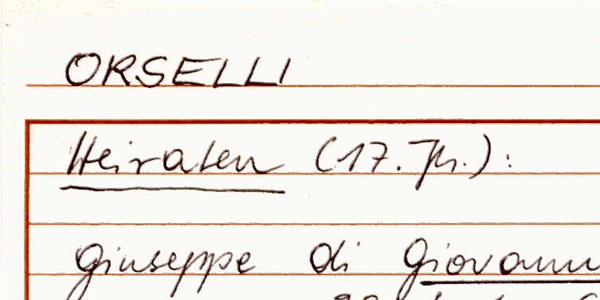 ORSELLI
Heiraten (17. Jh.):
Giuseppe di Giovann